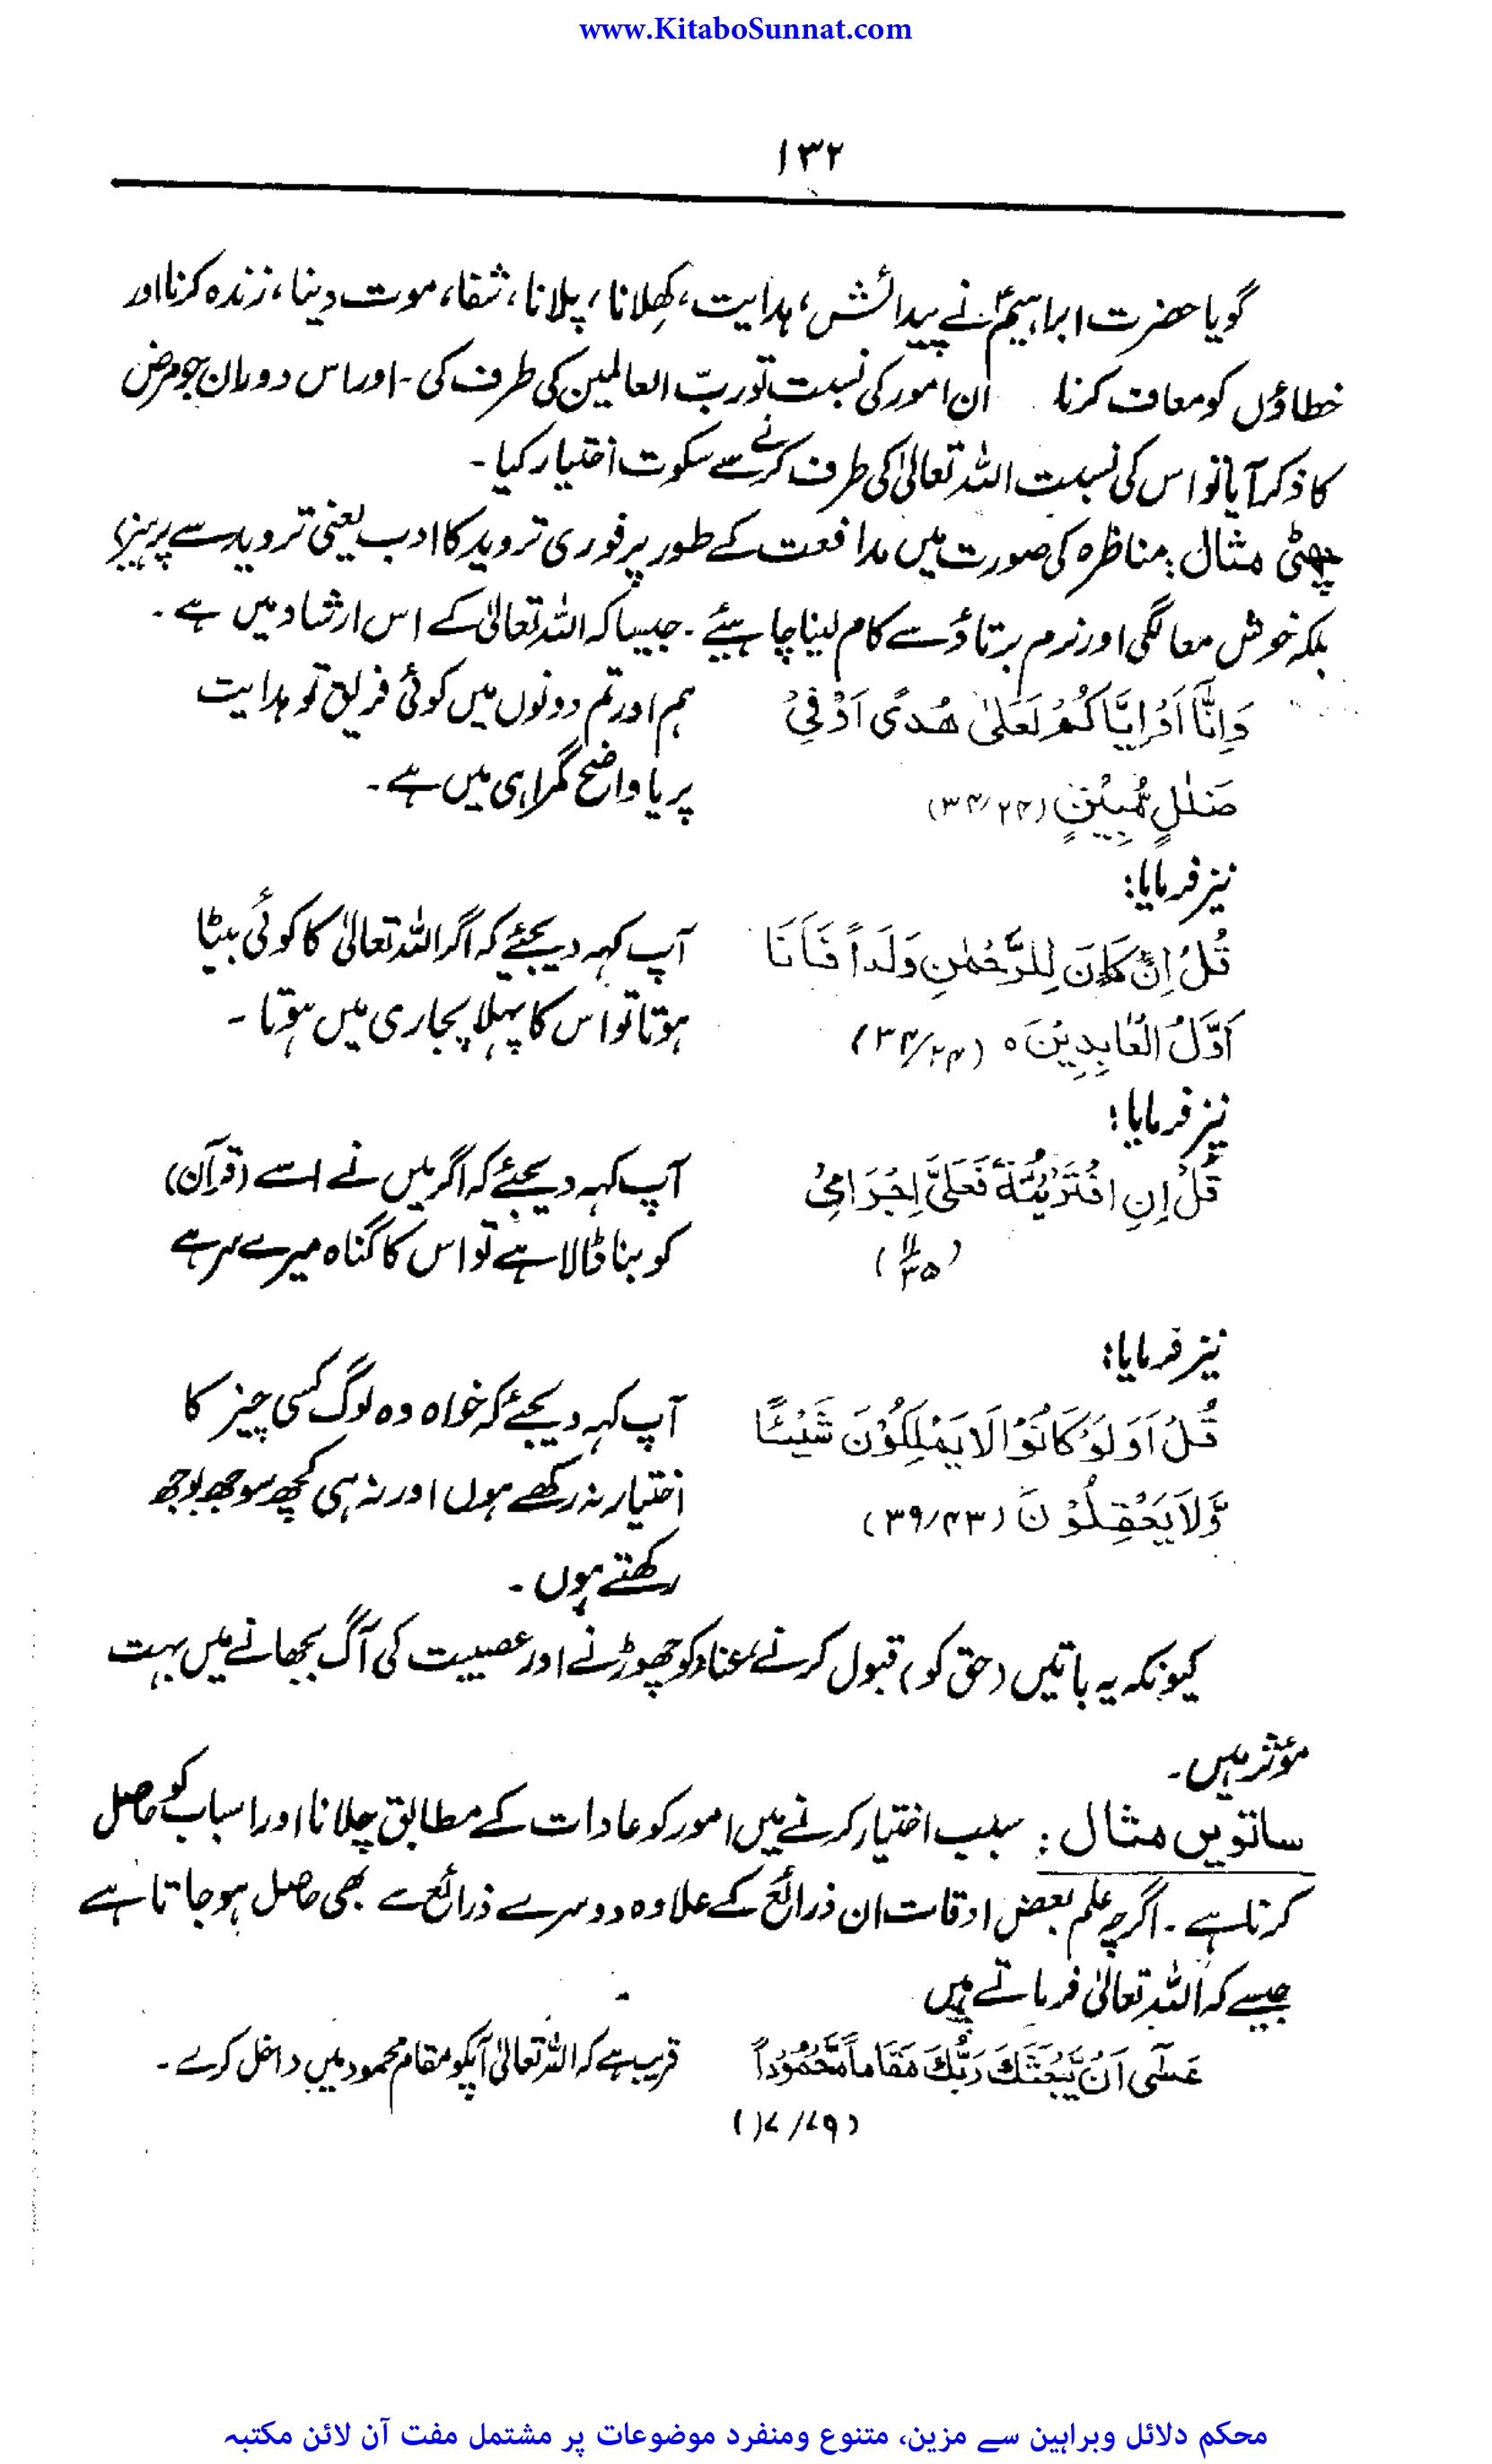 www.KitaboSunnat.com
۱۳۲
گویا حضرت ابراہیمؑ نے پیدائش، ہدایت، کھلانا، پلانا، شفا، موت دینا، زندہ کرنا اور
خطاؤں کو معاف کرنا ان امور کی نسبت تو ربّ العالمین کی طرف کی - اور اس دوران جو مرض
کا ذکر آیا تو اس کی نسبت اللہ تعالیٰ کی طرف کرنے سے سکوت اختیار کیا -
چھٹی مثال : مناظرہ کی صورت میں مدافعت کے طور پر فوری تردید کا ادب یعنی تردید سے پرہیز
بلکہ خوش معاملگی اور نرم برتاؤ سے کام لینا چاہیئے - جیسا کہ اللہ تعالیٰ کے اس ارشاد میں ہے -
وَاِنَّا اَوْ اِيَّاكُمْ لَعَلٰى هُدًى اَوْ فِيْ ہم اور تم دونوں میں کوئی فریق تو ہدایت
ضَلٰلٍ مُّبِيْنٍ (۳۴/۲۴) پر یا واضح گمراہی میں ہے -
نیز فرمایا :
قُلْ اِنْ كَانَ لِلرَّحْمٰنِ وَلَداً فَاَنَا آپ کہہ دیجئے کہ اگر اللہ تعالیٰ کا کوئی بیٹا
اَوَّلُ الْعَابِدِيْنَ ه (۳۴/۲۴) ہوتا تو اس کا پہلا پجاری میں ہوتا -
نیز فرمایا :
قُلْ اِنِ افْتَرَيْتُهٗ فَعَلَيَّ اِجْرَامِيْ آپ کہہ دیجئے کہ اگر میں نے اسے (قرآن)
(۱۱/۳۵) کو بنا ڈالا ہے تو اس کا گناہ میرے سر ہے
نیز فرمایا :
قُلْ اَوَلَوْ كَانُوْا لَا يَمْلِكُوْنَ شَيْئًا آپ کہہ دیجئے کہ خواہ وہ لوگ کسی چیز کا
وَّلَا يَعْقِلُوْنَ (۳۹/۴۳) اختیار نہ رکھے ہوں اور نہ ہی کچھ سوجھ بوجھ
رکھتے ہوں -
کیونکہ یہ باتیں (حق کو) قبول کرنے، عناد کو چھوڑنے اور عصبیت کی آگ بجھانے میں بہت
مؤثر ہیں -
ساتویں مثال : سبب اختیار کرنے میں امور کو عادات کے مطابق چلانا اور اسباب کو حاصل
کرنا ہے - اگرچہ علم بعض اوقات ان ذرائع کے علاوہ دوسرے ذرائع سے بھی حاصل ہو جاتا ہے
جیسے کہ اللہ تعالیٰ فرماتے ہیں
عَسٰٓى اَنْ يَّبْعَثَكَ رَبُّكَ مَقَاماً مَّحْمُوْداً قریب ہے کہ اللہ تعالیٰ آپکو مقام محمود میں داخل کرے -
(۱۷/۷۹)
محکم دلائل وبراہین سے مزین، متنوع ومنفرد موضوعات پر مشتمل مفت آن لائن مکتبہ